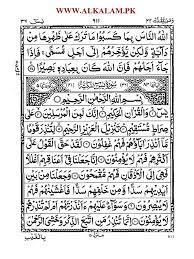 WWW.ALKALAM.PK
٩١١
اللهُ النَّاسَ بِمَا كَسَبُوْا مَا تَرَكَ عَلٰى ظَهْرِهَا مِنْ
دَآبَّةٍ وَّلٰكِنْ يُّؤَخِّرُهُمْ اِلٰٓى اَجَلٍ مُّسَمًّى فَاِذَا
جَآءَ اَجَلُهُمْ فَاِنَّ اللهَ كَانَ بِعِبَادِهٖ بَصِيْرًا
بِسْمِ اللهِ الرَّحْمٰنِ الرَّحِيْمِ
يٰسٓ وَالْقُرْاٰنِ الْحَكِيْمِ اِنَّكَ لَمِنَ الْمُرْسَلِيْنَ عَلٰى
صِرَاطٍ مُّسْتَقِيْمٍ تَنْزِيْلَ الْعَزِيْزِ الرَّحِيْمِ لِتُنْذِرَ
قَوْمًا مَّآ اُنْذِرَ اٰبَآؤُهُمْ فَهُمْ غٰفِلُوْنَ لَقَدْ حَقَّ الْقَوْلُ
عَلٰٓى اَكْثَرِهِمْ فَهُمْ لَا يُؤْمِنُوْنَ اِنَّا جَعَلْنَا فِيْٓ اَعْنَاقِهِمْ
اَغْلٰلًا فَهِيَ اِلَى الْاَذْقَانِ فَهُمْ مُّقْمَحُوْنَ وَجَعَلْنَا مِنْۢ بَيْنِ
اَيْدِيْهِمْ سَدًّا وَّمِنْ خَلْفِهِمْ سَدًّا فَاَغْشَيْنٰهُمْ فَهُمْ
لَا يُبْصِرُوْنَ وَسَوَآءٌ عَلَيْهِمْ ءَاَنْذَرْتَهُمْ اَمْ لَمْ تُنْذِرْهُمْ
لَا يُؤْمِنُوْنَ اِنَّمَا تُنْذِرُ مَنِ اتَّبَعَ الذِّكْرَ وَخَشِيَ الرَّحْمٰنَ
بِالْغَيْبِ